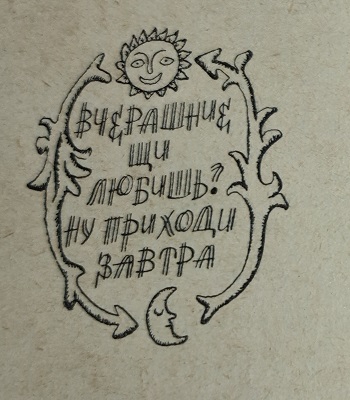 ВЧЕРАШНИЕ
ЩИ
ЛЮБИШЬ?
НУ ПРИХОДИ
ЗАВТРА